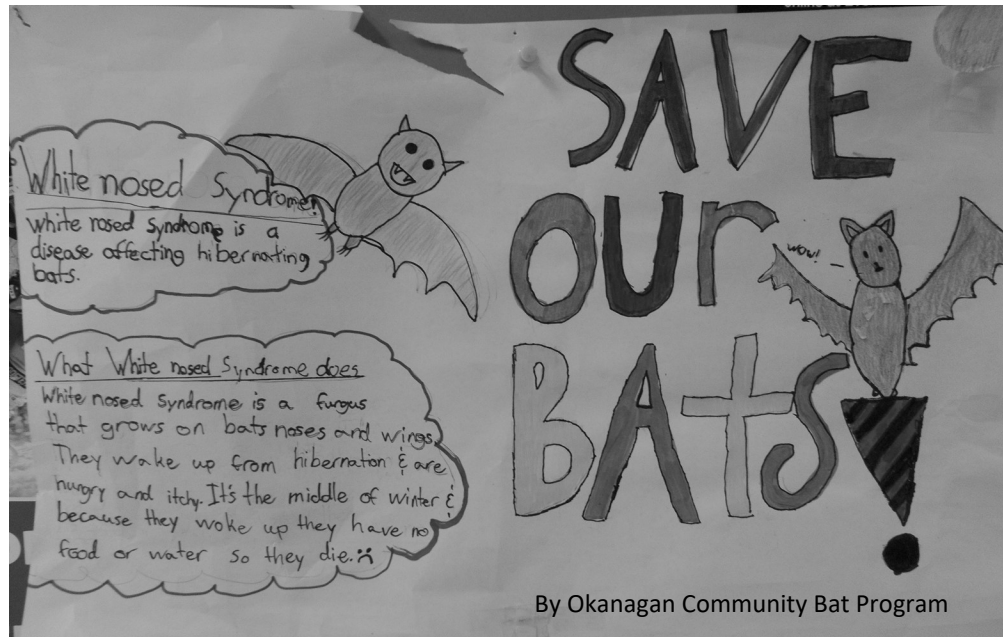 White nosed Syndrome!
White nosed syndrome is a
disease affecting hibernating
bats.
What White nosed Syndrome does
White nosed syndrome is a fungus
that grows on bats noses and wings.
They wake up from hibernation & are
hungry and itchy. It's the middle of winter &
because they woke up they have no
food or water so they die.
SAVE
our
BAtS!
wow!
By Okanagan Community Bat Program